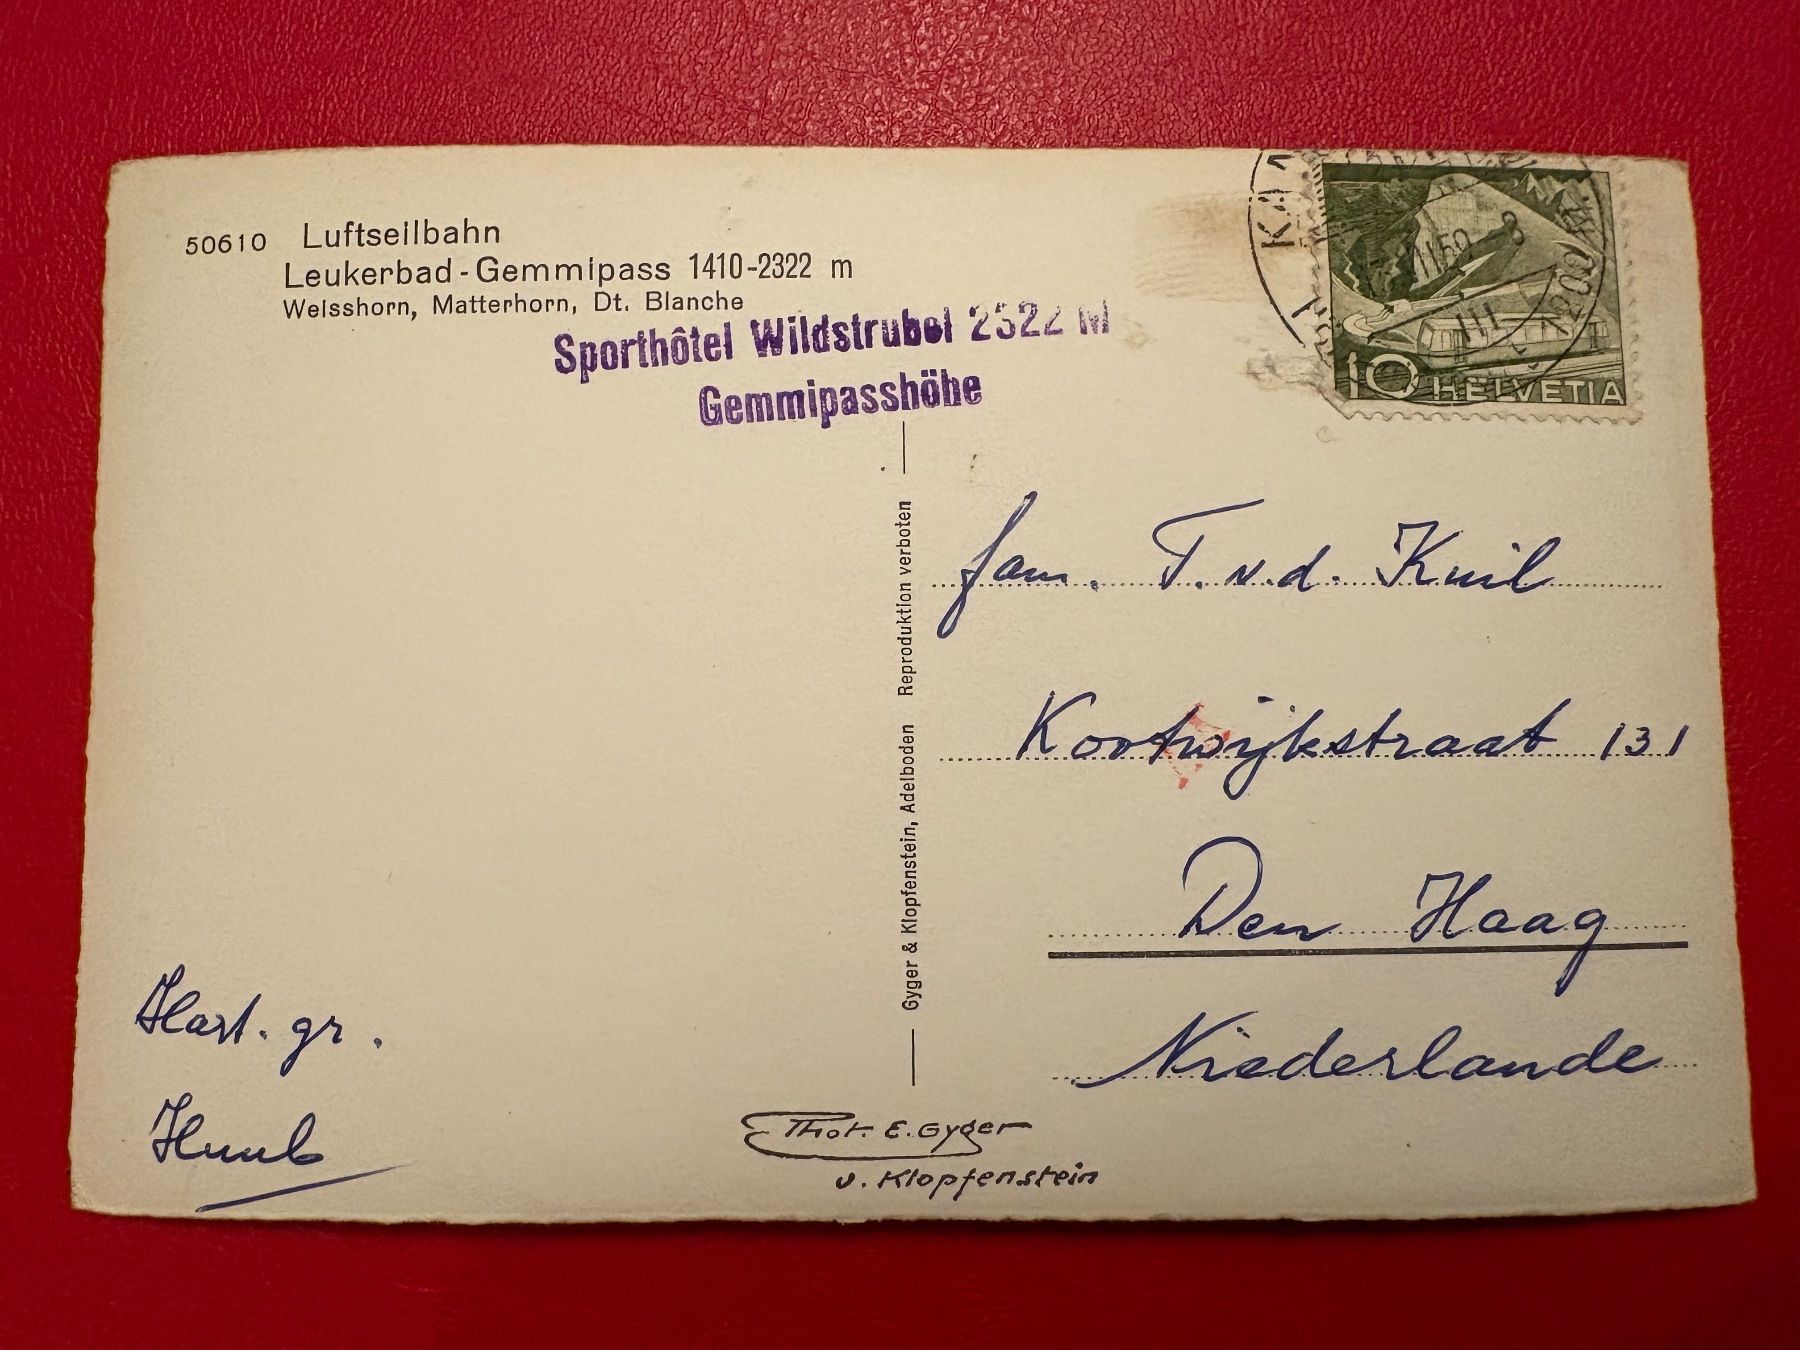 50610 Luftseilbahn
Leukerbad - Gemmipass 1410-2322 m
Weisshorn, Matterhorn, Dt. Blanche
Sporthôtel Wildstrubel 2322 M
Gemmipasshöhe
10 HELVETIA
Gyger & Klopfenstein, Adelboden Reproduktion verboten
fam. T. v.d. Kuil
Kootwijkstraat 131
Den Haag
Niederlande
Hart. gr.
Huub
Phot. E. Gyger
v. Klopfenstein